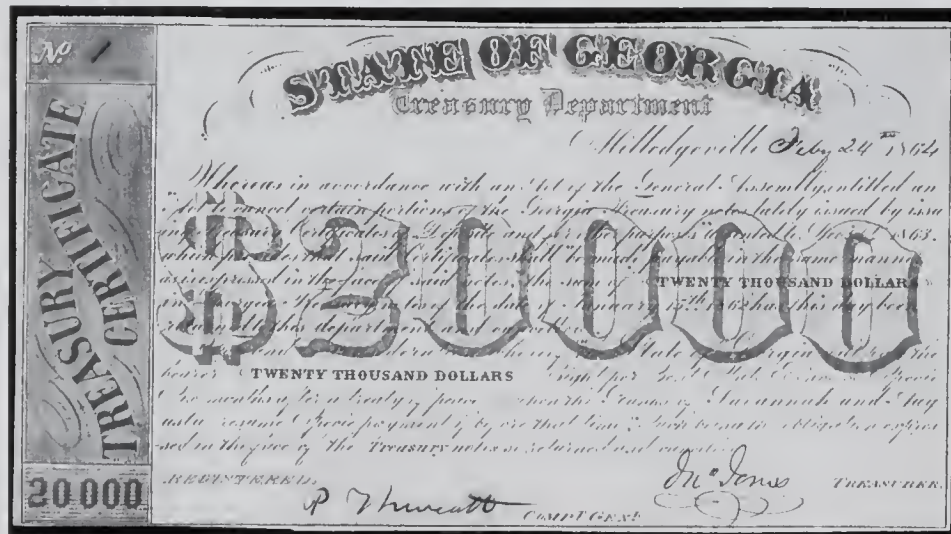 No. 1
STATE OF GEORGIA
Treasury Department
Milledgeville Feby 24th 1864
Whereas in accordance with an Act of the General Assembly, entitled an
cancel certain portions of the Georgia Treasury notes lately issued by
Treasury Certificates of Deposite and for other purposes 1863.
which provides that said Certificates shall be made payable in the same manner
as expressed in the face of said notes, the sum of TWENTY THOUSAND DOLLARS
in Georgia Treasury notes of the date of January 5th 1862 has this day been
returned to this department and
$20000
the State of Georgia the
bearer TWENTY THOUSAND DOLLARS
Six months after a treaty of peace when the Banks of Savannah and Aug
usta resume Specie payment if before that time
sed in the face of the Treasury notes returned and
REGISTERED.
P Thweatt COMPT. GENl.
Jno Jones TREASURER.
TREASURY
CERTIFICATE
20000